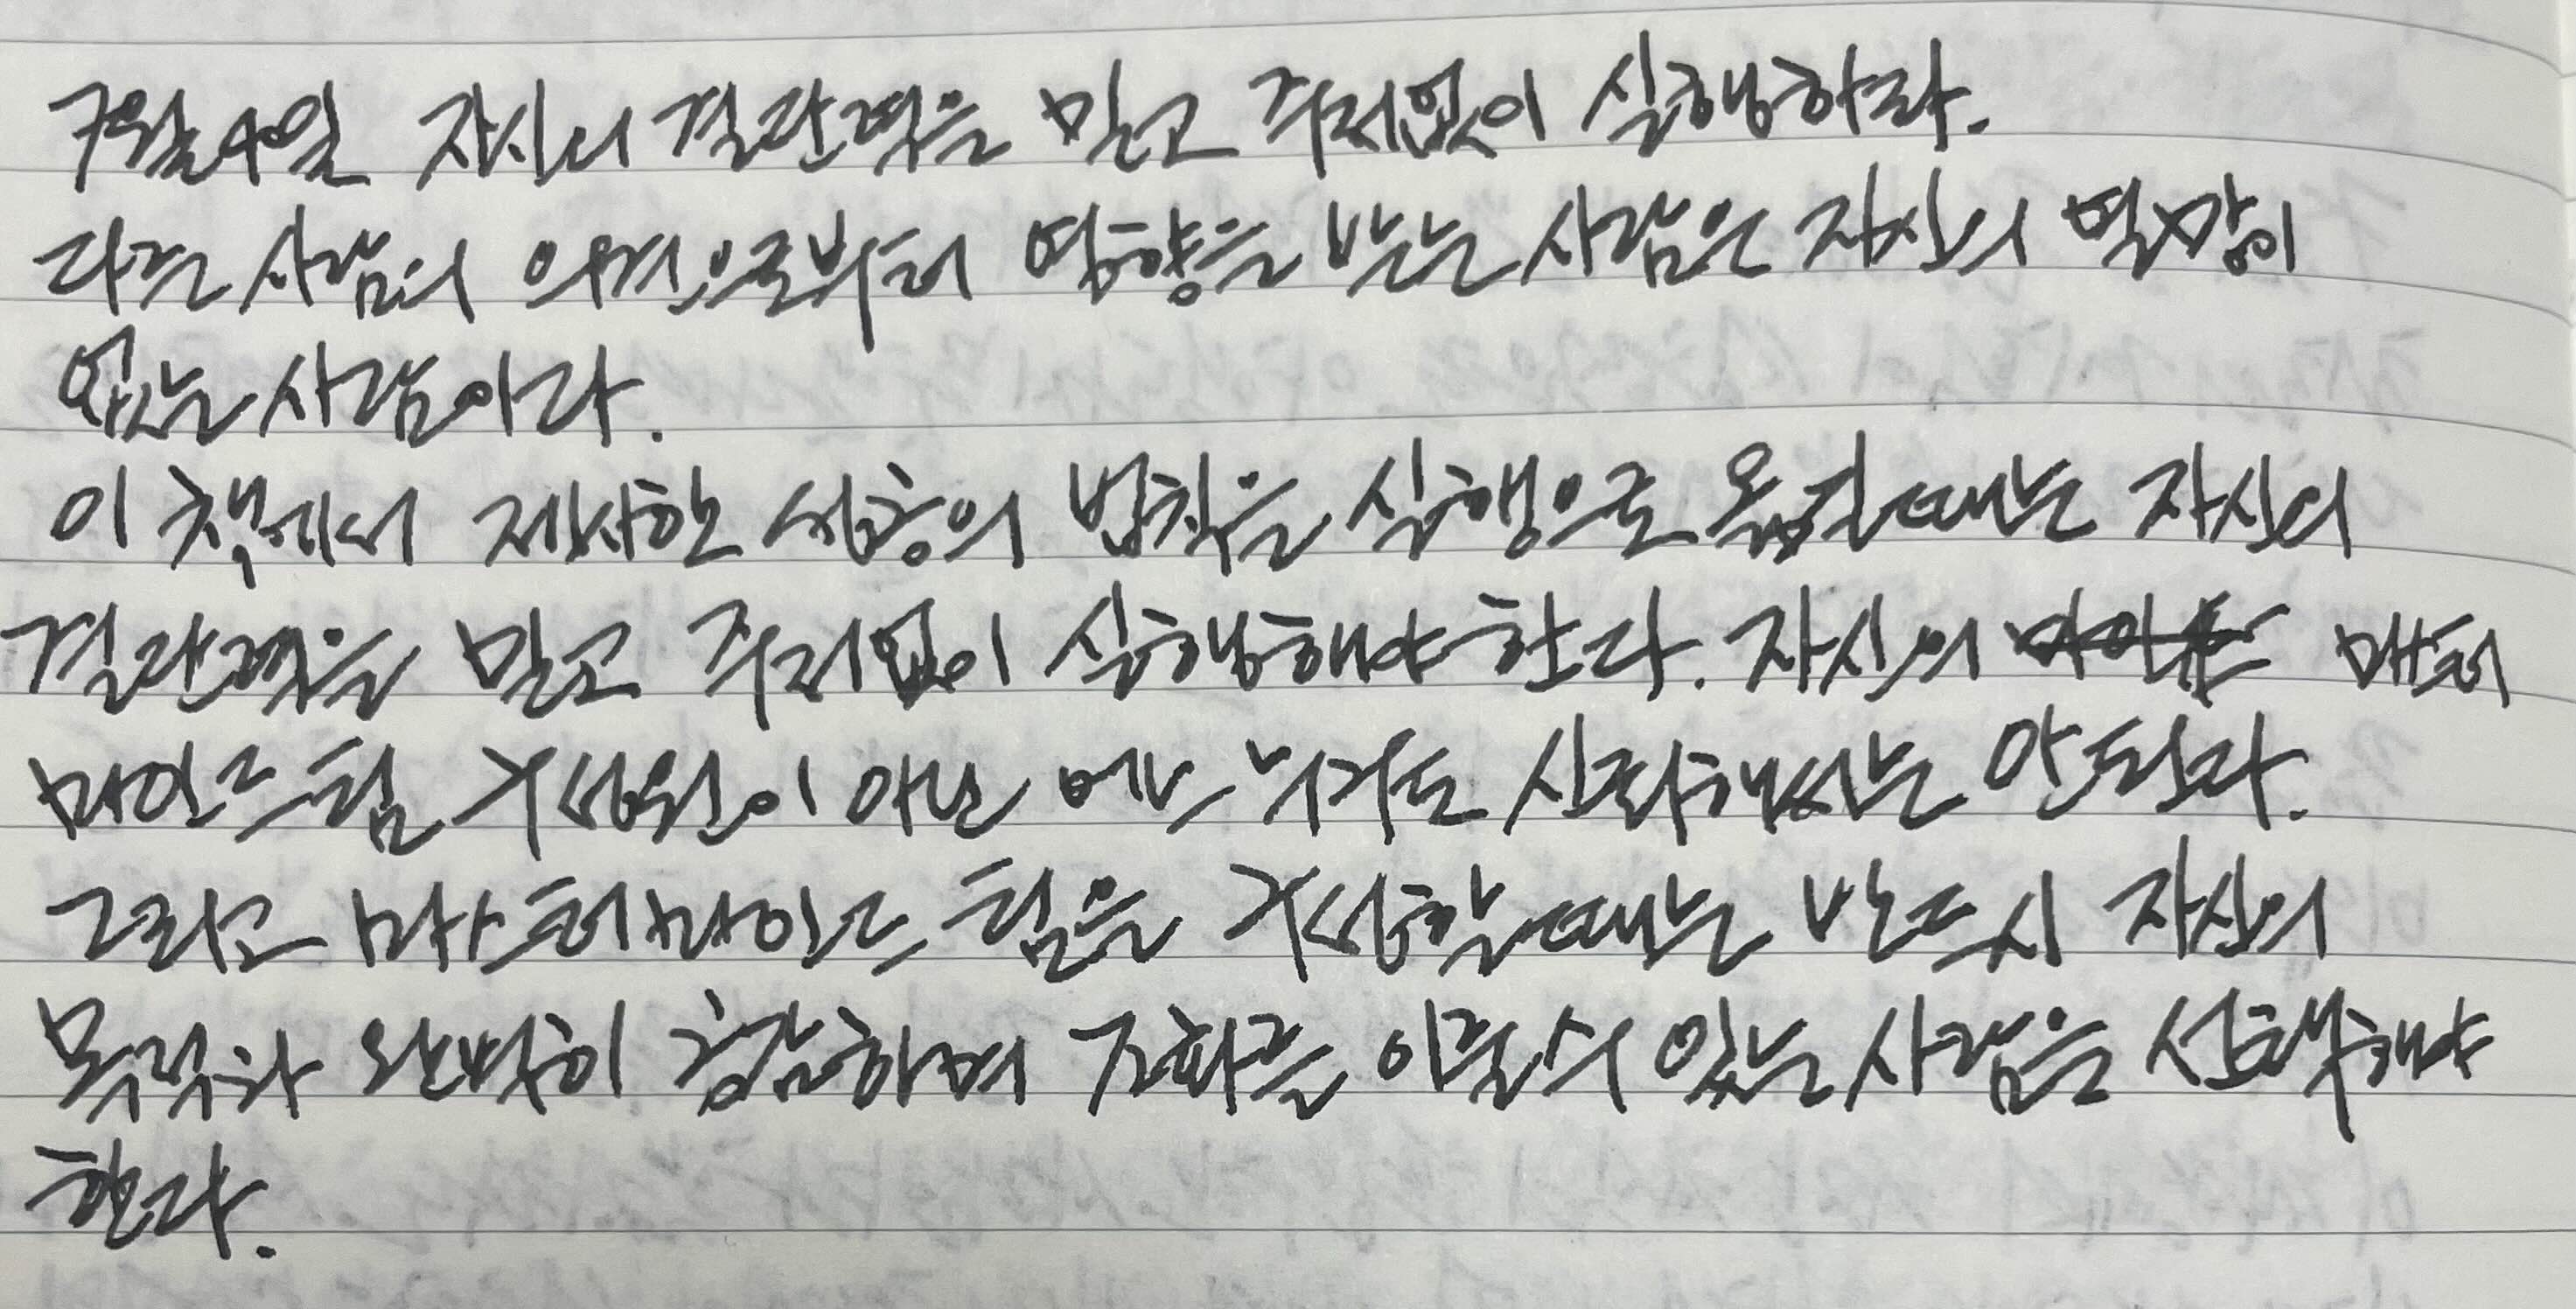 7월4일 자신의 결단력을 믿고 주저없이 실행하라.
다른 사람의 의견으로부터 영향을 받는 사람은 자신의 열망이
없는 사람이다.
이 책에서 제시한 성공의 법칙을 실행으로 옮길때는 자신의
결단력을 믿고 주저없이 실행해야 한다. 자신의 매스터
마인드 팀 구성원이 아닌 누구도 신뢰해서는 안된다.
그리고 마스터마인드 팀을 구성할때는 반드시 자신의
목적과 완벽히 공감하며 조화를 이룰수 있는 사람을 선택해야
한다.